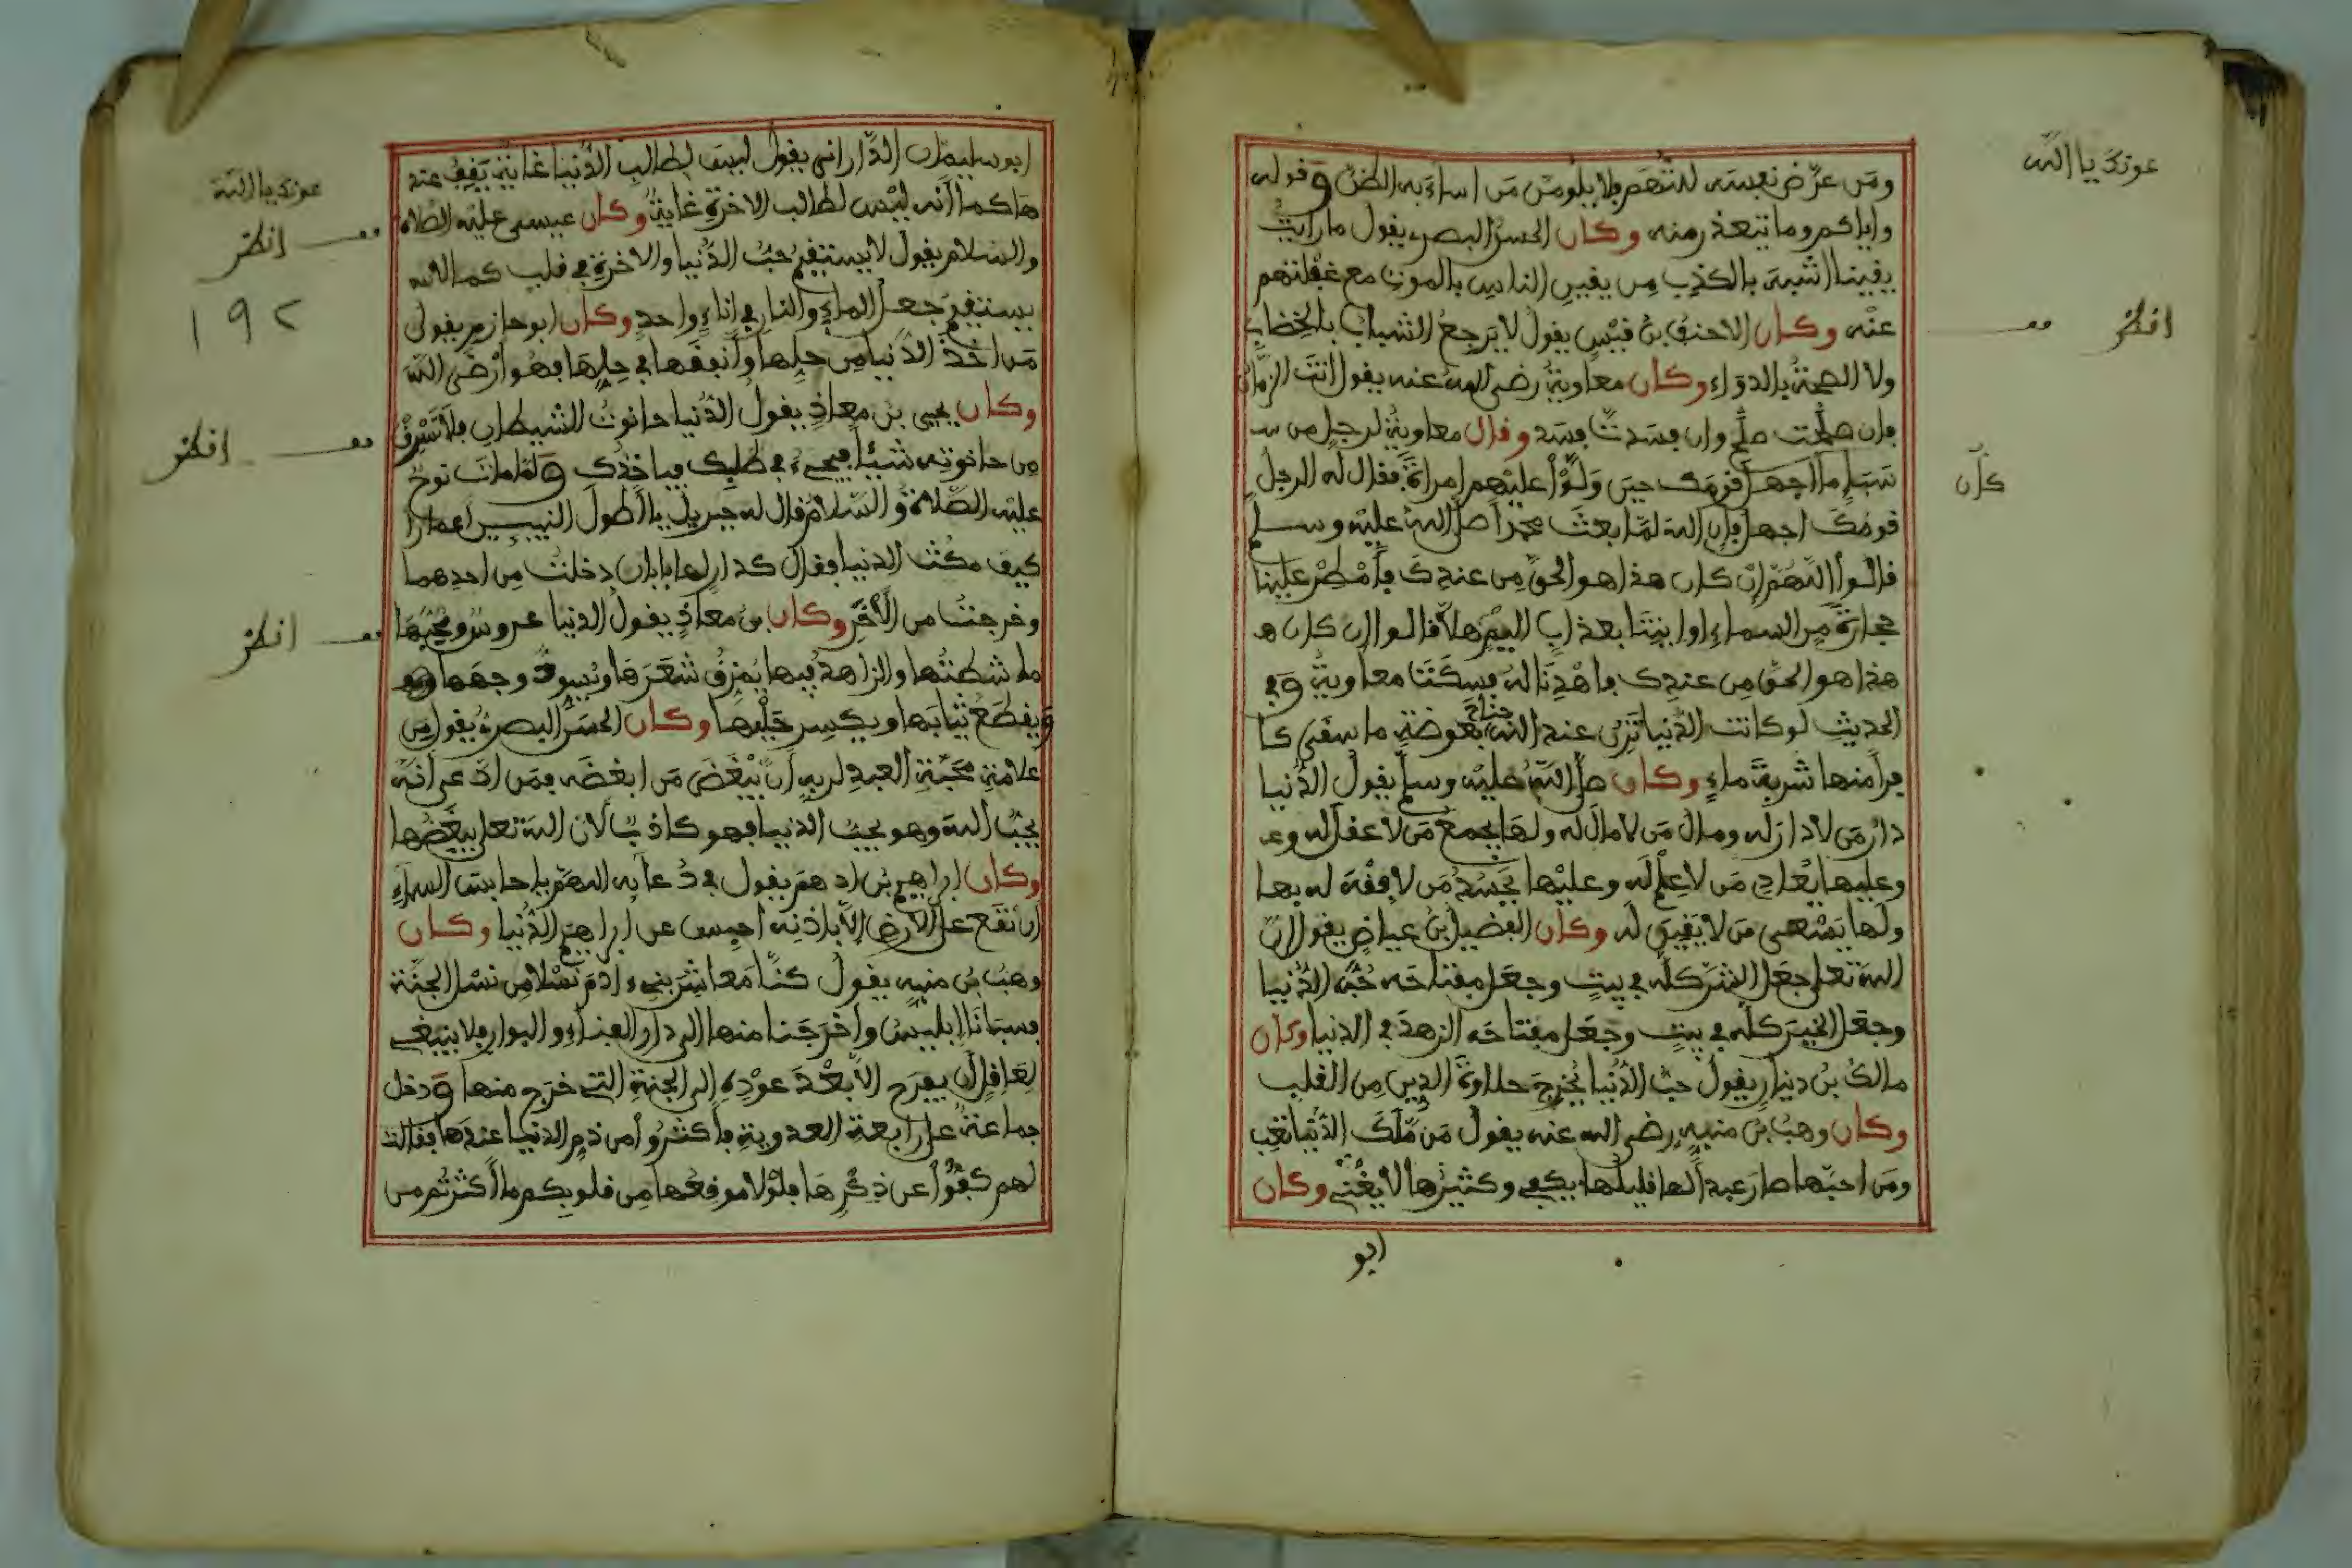 عونك يا الله
ومن عرّض نفسه للتُّهَم فلا يلومنّ من اساء به الظنّ وقوله
واياكم وما تتعذر منه وكان الحسن البصري يقول ما رايت
يقينا اشبه بالكذب من يقين الناس بالموت مع غفلتهم
عنه وكان الاحنف بن قيس يقول لا يرجع الشباب بالخضاب
انظر
ولا الصحة بالدواء وكان معاوية رضي الله عنه يقول انت الزمان
فان صلحت صلح وان فسدت فسد وقال معاوية لرجل من س
سبإ ما اجهل قومك حين ولّوا عليهم امراة فقال له الرجل
كان
قومك اجهل فإن الله لمّا بعث محمدا صلى الله عليه وسلم
قالوا اللهم إن كان هذا هو الحق من عندك فأمطر علينا
حجارة من السماء او ايتنا بعذاب اليم هلا قالوا ان كان ه
هذا هو الحق من عندك فاهدنا له فسكت معاوية وفي
الحديث لو كانت الدنيا تزن عند الله جناح بعوضة ما سقى كا
فرا منها شربة ماء وكان صلى الله عليه وسلم يقول الدنيا
دار من لا دار له ومال من لا مال له ولها يجمع من لا عقل له وع
وعليها يعادي من لا علم له وعليها يحسد من لا فقه له بها
ولها يسعى من لا يقين له وكان الفضيل بن عياض يقول ان
الله تعلى جعل الشر كله في بيت وجعل مفتاحه حب الدنيا
وجعل الخير كله في بيت وجعل مفتاحه الزهد في الدنيا وكان
مالك بن دينار يقول حب الدنيا يخرج حلاوة الدين من القلب
وكان وهب بن منبه رضي الله عنه يقول من ملك الدنيا تعب
ومن احبّها صار عبدا لها قليلها يكفي وكثيرها لا يغني وكان
ابو
عونك يا الله
ابو سليمان الدّاراني يقول ليس لطالب الدّنيا غاية يقف عند
ها كما انه ليس لطالب الاخرة غاية وكان عيسى عليه الصلاة
انظر
والسلام يقول لا يستقيم حبّ الدّنيا والاخرة في قلب كما لا
يستقيم جعل الماء والنار في اناء واحد وكان ابو حازم يقول
١٩٢
من اخذ الدنيا من حلها وأنفقها في حلها فهو ارضى الله
وكان يحيى بن معاذ يقول الدنيا حانوت الشيطان فلا تسرق
انظر
من حانوته شيئا فيجيء في طلبك فياخذك ولما مات نوح
عليه الصلاة والسلام قال له جبريل يا أطول النبيين اعمارا
كيف مكثت الدنيا فقال كدار لها بابان دخلت من احدهما
وخرجت من الأخر وكان بن معاذ يقول الدنيا عروس ومحبّها
انظر
ماشطتها والزاهد فيها يمزق شعرها ويسود وجهها
ويقطع ثيابها ويكسر حليها وكان الحسن البصري يقول من
علامة محبّة العبد لربه أن يبغض من ابغضه فمن ادّعى أنه
يحبّ الله وهو يحب الدنيا فهو كاذب لان الله تعلى يبغضها
وكان ابراهيم بن ادهم يقول في دعآيه اللهم يا حابس السماء
ان تقع على الارض الا باذنه احبس عن ابراهيم الدنيا وكان
وهب بن منبه يقول كنّا معاشر بني ءادم نسلا من نسل الجنة
فسبانا ابليس واخرجنا منها الى دار الفناء والبوار فلا ينبغي
لعاقل ان يفرح الا بعد عوده الى الجنة التي خرج منها ودخل
جماعة على رابعة العدوية فأكثروا من ذم الدنيا عندها فقالت
لهم كفّوا عن ذكرها فلولا موقعها من قلوبكم ما أكثرتم من